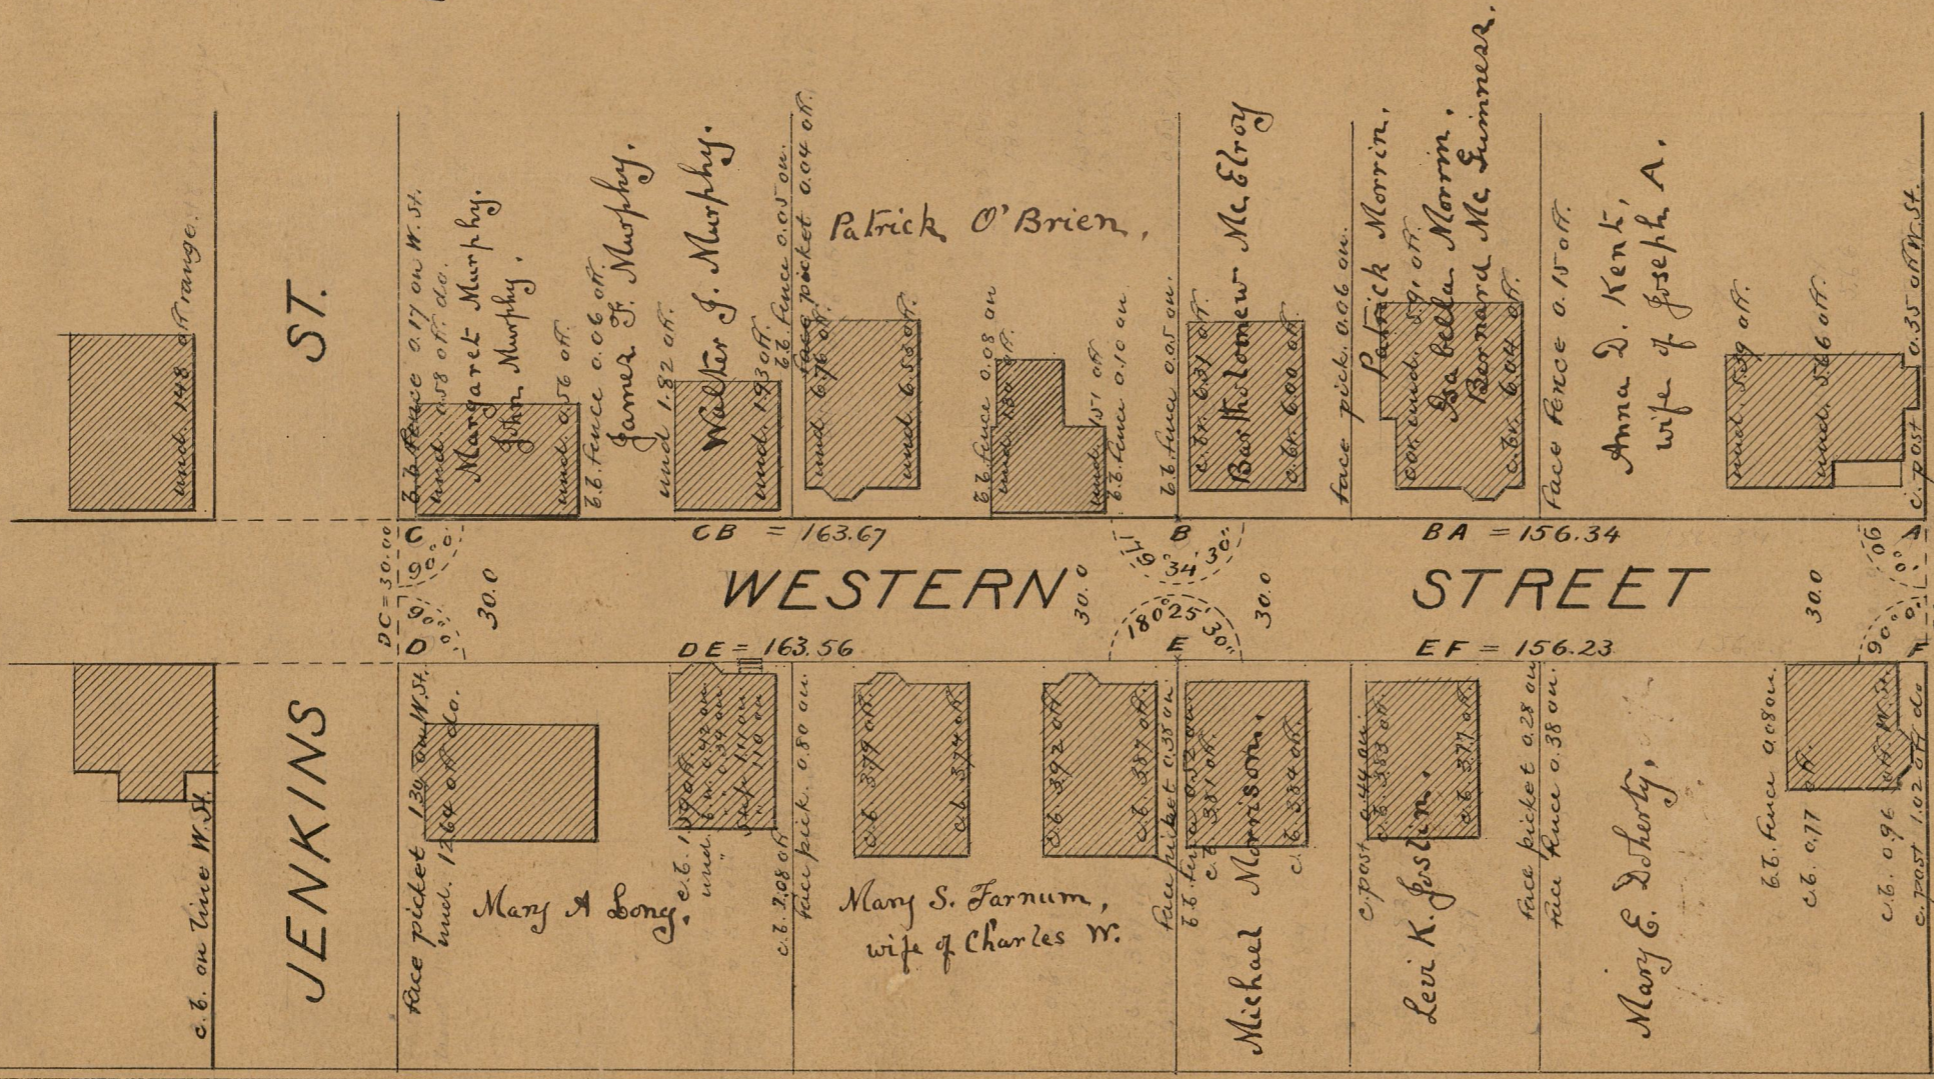 und. 1.48 off range.
ST.
b.b. fence 0.17 on W. St.
und. 0.58 off. do.
Margaret Murphy.
John Murphy.
und. 0.56 off.
b.b. fence 0.06 off.
James F. Murphy.
und 1.82 off.
Walter J. Murphy.
und. 1.93 off.
b.b. fence 0.05 on.
face picket 0.04 off.
Patrick O'Brien,
und. 6.76 off.
und. 6.53 off.
b.b. fence 0.08 on
und. 1.50 off.
und. 1.51 off
b.b. fence 0.10 on
b.b. fence 0.05 on.
c.br. 6.31 off.
Bartholomew Mc Elroy
c.br. 6.00 off.
face pick. 0.06 on.
Patrick Morrin.
cor. und. 5.91 off.
Isabella Morrin.
Bernard Mc Guinness.
c.br. 6.04 off.
Face Fence 0.15 off.
Anna D. Kent,
wife of Joseph A.
und 5.39 off.
und. 5.66 off.
c. post 0.35 off W. St.
C CB = 163.67 B BA = 156.34 A
90° 0' 0" 179° 34' 30" 90° 0' 0"
DC = 30.00
30.0 WESTERN 30.0 30.0 STREET 30.0
90° 0' 0" 180° 25' 30" 90° 0' 0"
D DE = 163.56 E EF = 156.23 F
JENKINS
c.b. on line W. St.
Face picket 1.30 on W. St.
und. 12.64 off do.
Mary A Long.
c.b. 1.39 off.
und.
b.w. 0.42 on
" " 0.34 on
step 1.11 on
" 1.10 on
c.b. 2.08 off
face pick. 0.80 on.
c.b. 3.79 off.
c.b. 3.74 off.
Mary S. Farnum,
wife of Charles W.
c.b. 3.92 off.
c.b. 3.87 off.
Face picket 0.38 on
b.b. fence 0.52 on
c.b. 3.81 off.
Michael Morrison.
c.b. 3.84 off.
c. post 0.44 on.
c.b. 3.83 off.
Levi K. Joslin.
c.b. 3.77 off.
Face picket 0.28 on
face fence 0.38 on.
Mary E. Doherty.
b.b. fence 0.08 on.
c.b. 0.77 off.
c.b. 0.96 off. W. St.
c. post 1.02 off do